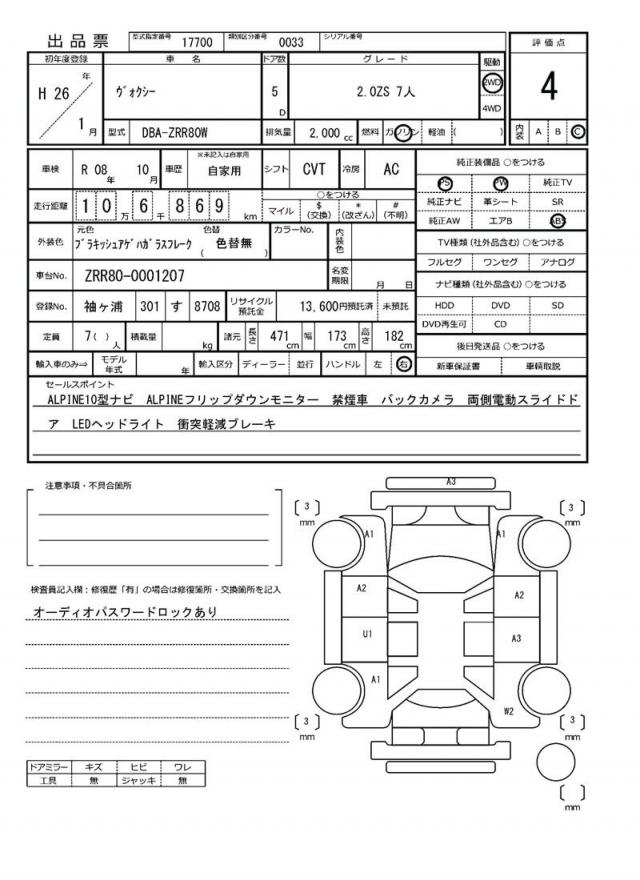 出品票 型式指定番号 17700 類別区分番号 0033 シリアル番号
評価点
4
内装 A B C
初年度登録 車名 ドア数 グレード 駆動
H 26 年 1 月 ヴォクシー 5 D 2.0ZS 7人 2WD 4WD
型式 DBA-ZRR80W 排気量 2,000 cc 燃料 ガソリン 軽油 ( )
車検 R 08 年 10 月 車歴 ※未記入は自家用 自家用 シフト CVT 冷房 AC
走行距離 1 0 万 6 千 8 6 9 km ○をつける
マイル $ (交換) * (改ざん) # (不明)
外装色 元色 ブラキッシュアゲハガラスフレーク 色替 ( 色替無 ) カラーNo. 内装色
車台No. ZRR80-0001207 名変期限 月 日
登録No. 袖ヶ浦 301 す 8708 リサイクル預託金 13,600円預託済 未預託
定員 7( ) 人 積載量 kg 諸元 長さ 471 cm 幅 173 cm 高さ 182 cm
輸入車のみ⇒ モデル年式 年 輸入区分 ディーラー 並行 ハンドル 左 右
純正装備品 ○をつける
PS PW 純正TV
純正ナビ 革シート SR
純正AW エアB ABS
TV種類(社外品含む) ○をつける
フルセグ ワンセグ アナログ
ナビ種類(社外品含む) ○をつける
HDD DVD SD
DVD再生可 CD
後日発送品 ○をつける
新車保証書 車輌取説
セールスポイント
ALPINE10型ナビ ALPINEフリップダウンモニター 禁煙車 バックカメラ 両側電動スライドド
ア LEDヘッドライト 衝突軽減ブレーキ
注意事項・不具合箇所
検査員記入欄:修復歴「有」の場合は修復箇所・交換箇所を記入
オーディオパスワードロックあり
ドアミラー キズ ヒビ ワレ
工具 無 ジャッキ 無
A3
3 mm
3 mm
A1
A1
A2
A2
U1
A3
A1
W2
3 mm
3 mm
mm